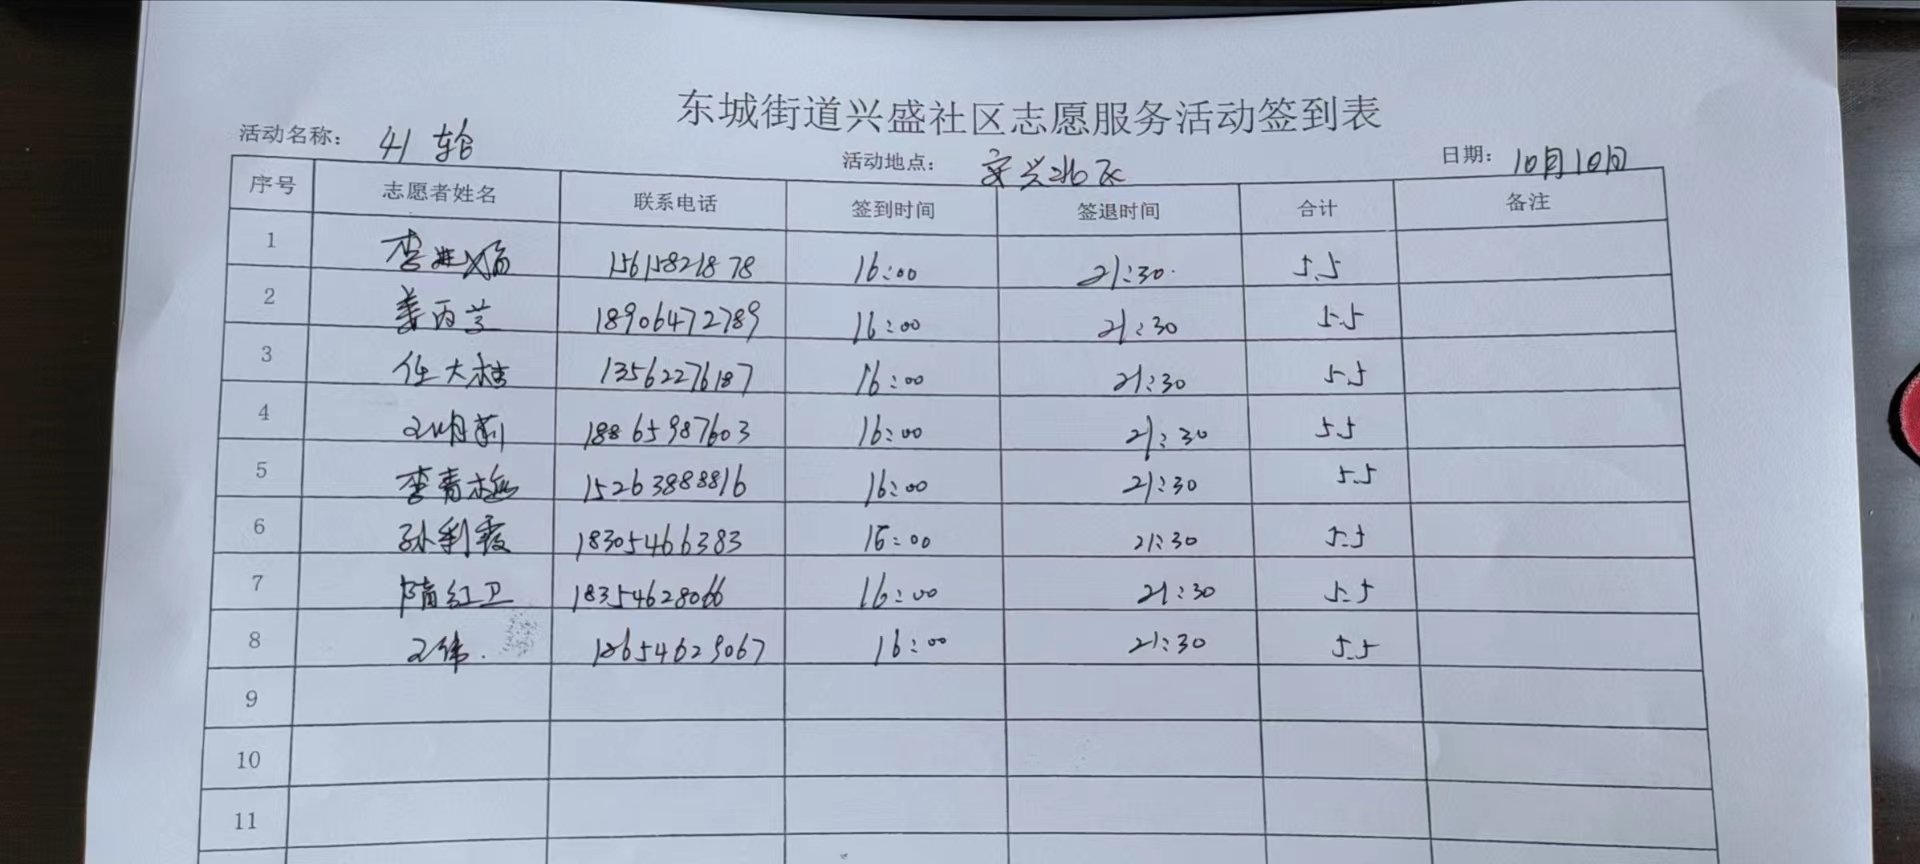 东城街道兴盛社区志愿服务活动签到表
活动名称: 41轮 活动地点: 安兴北区 日期: 10月10日
序号 志愿者姓名 联系电话 签到时间 签退时间 合计 备注
1 李 15615821878 16:00 21:30 5.5
2 姜丙兰 18906472789 16:00 21:30 5.5
3 任大桂 13562276187 16:00 21:30 5.5
4 王明莉 18865987603 16:00 21:30 5.5
5 李青梅 15263888816 16:00 21:30 5.5
6 孙利霞 18305466383 16:00 21:30 5.5
7 隋红卫 18354628066 16:00 21:30 5.5
8 王伟. 16:00 21:30 5.5
9
10
11